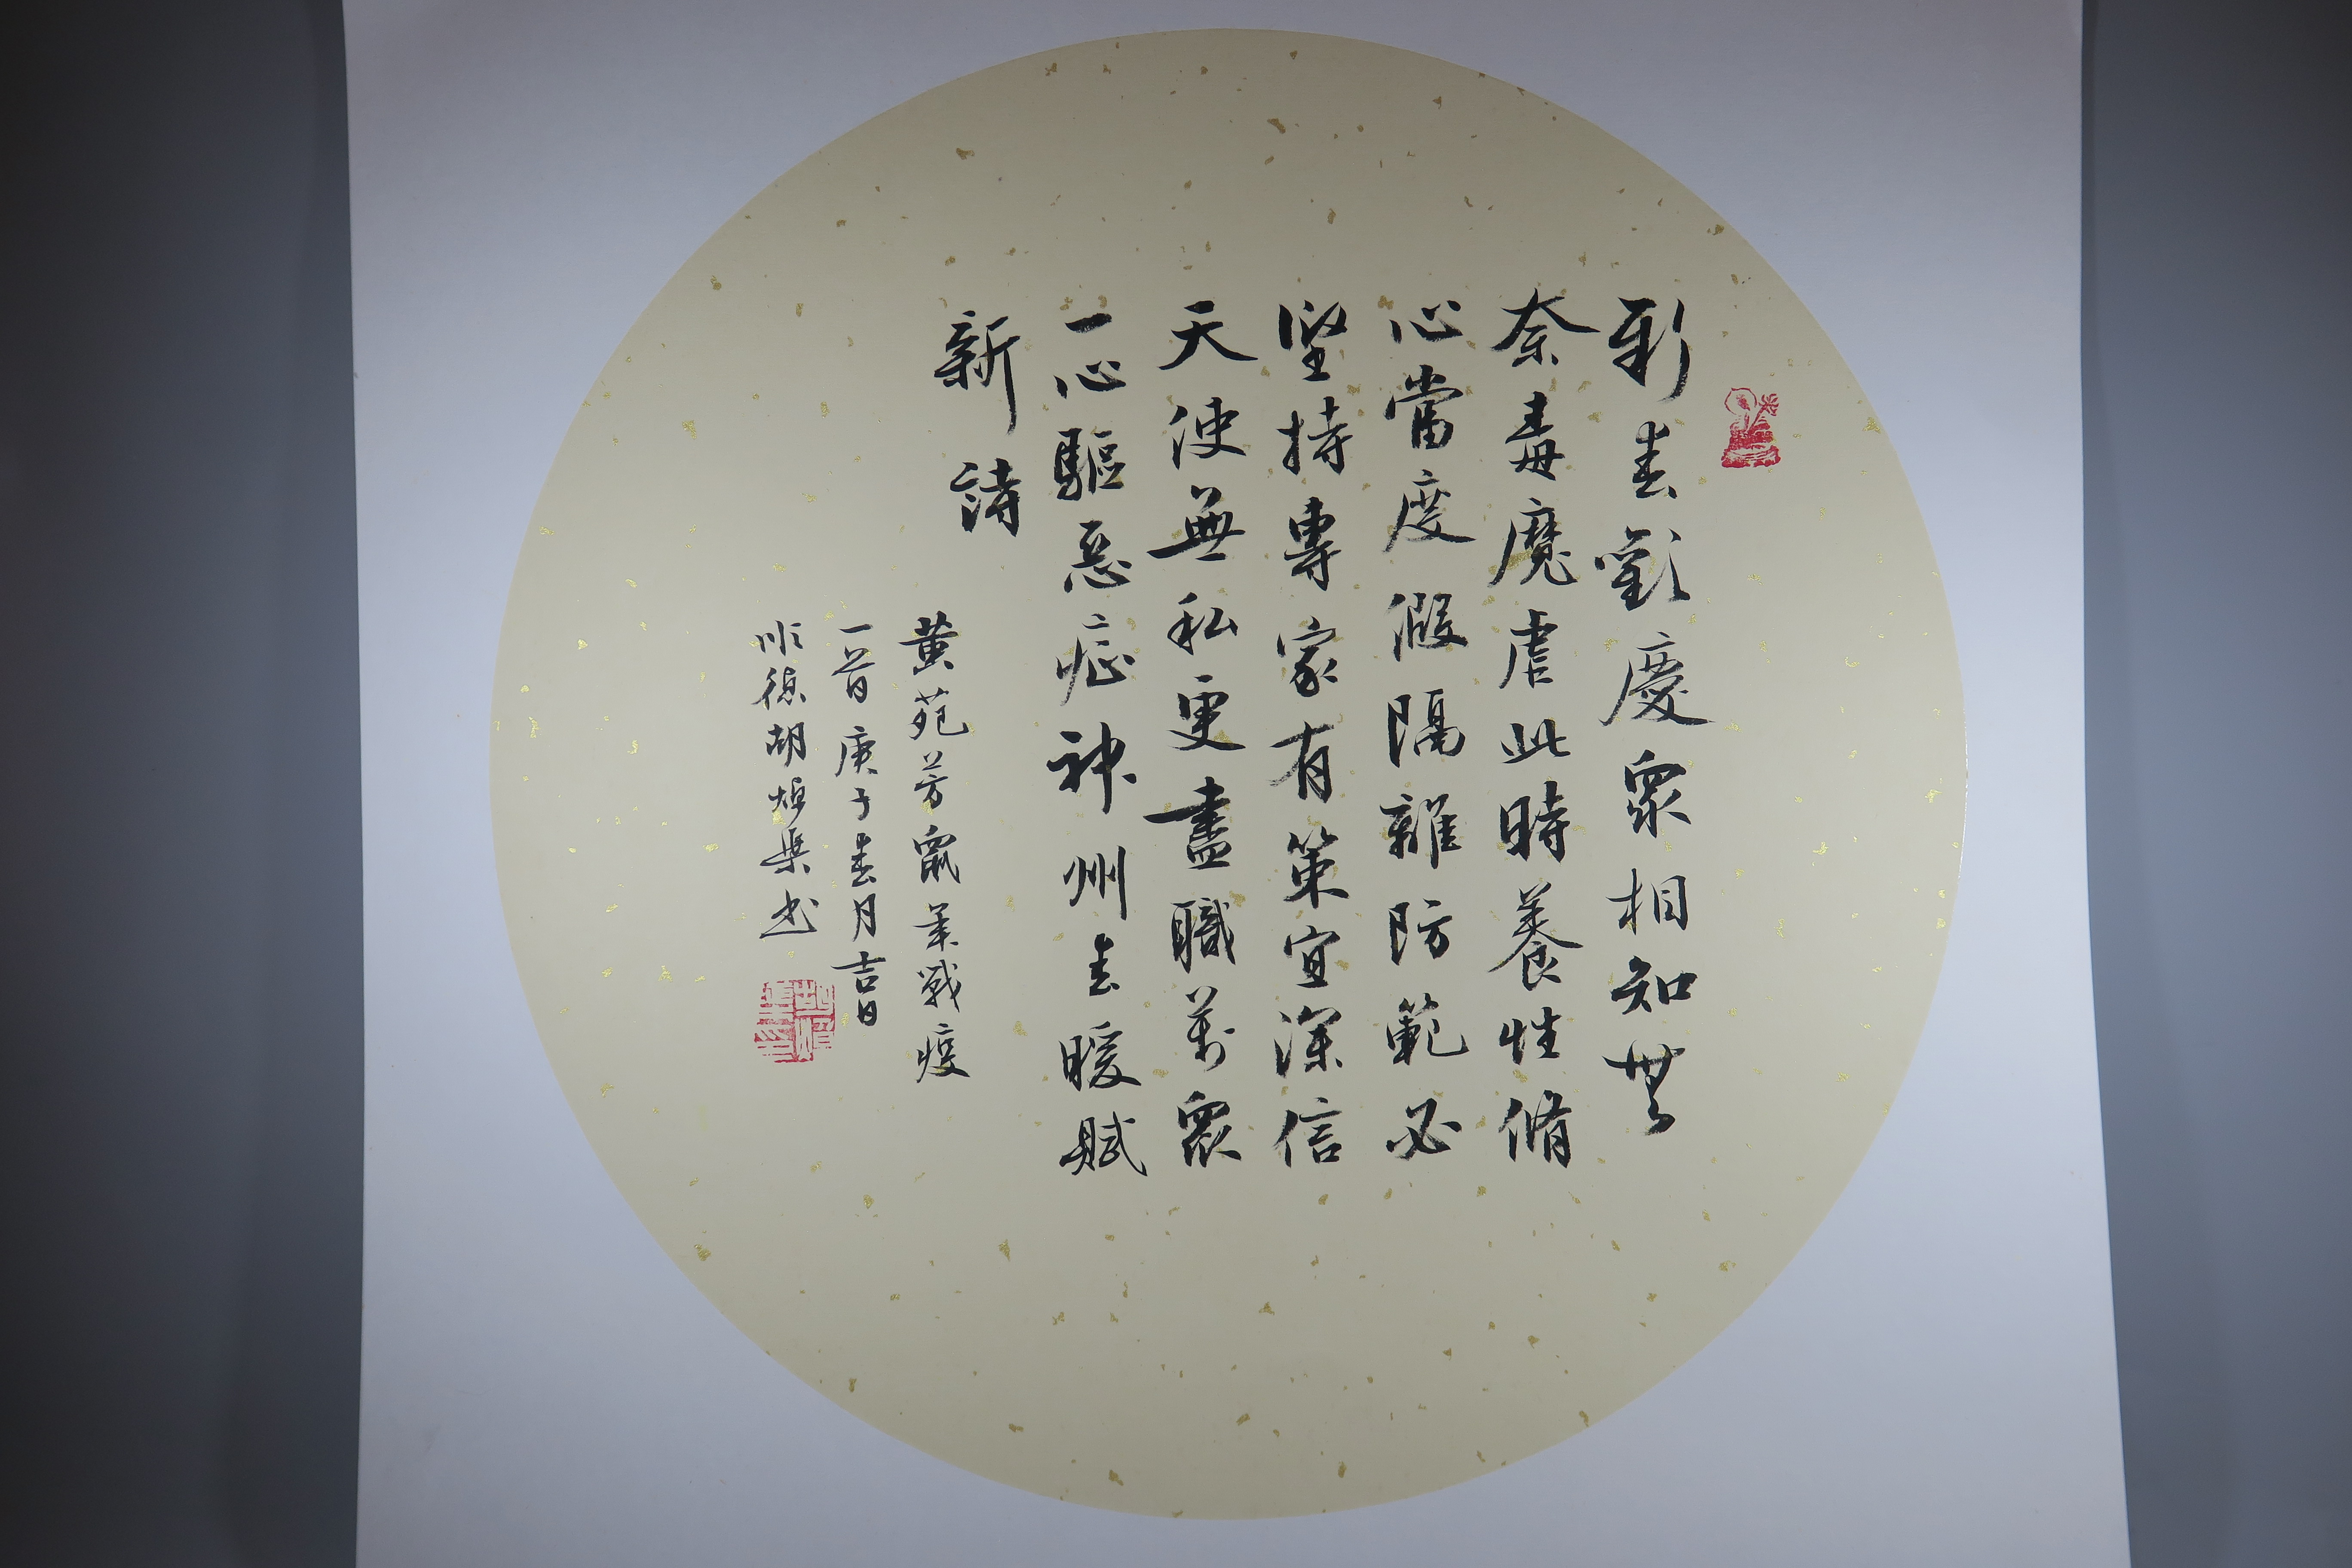 新春歡慶眾相知無
奈毒魔虐此時養性脩
心當度假隔離防範必
堅持專家有策宜深信
天使無私更盡職萬眾
一心驅惡症神州春暖賦
新詩
黄苑芳鼠年戰疫
一首庚子春月吉日
順德胡焯榘书